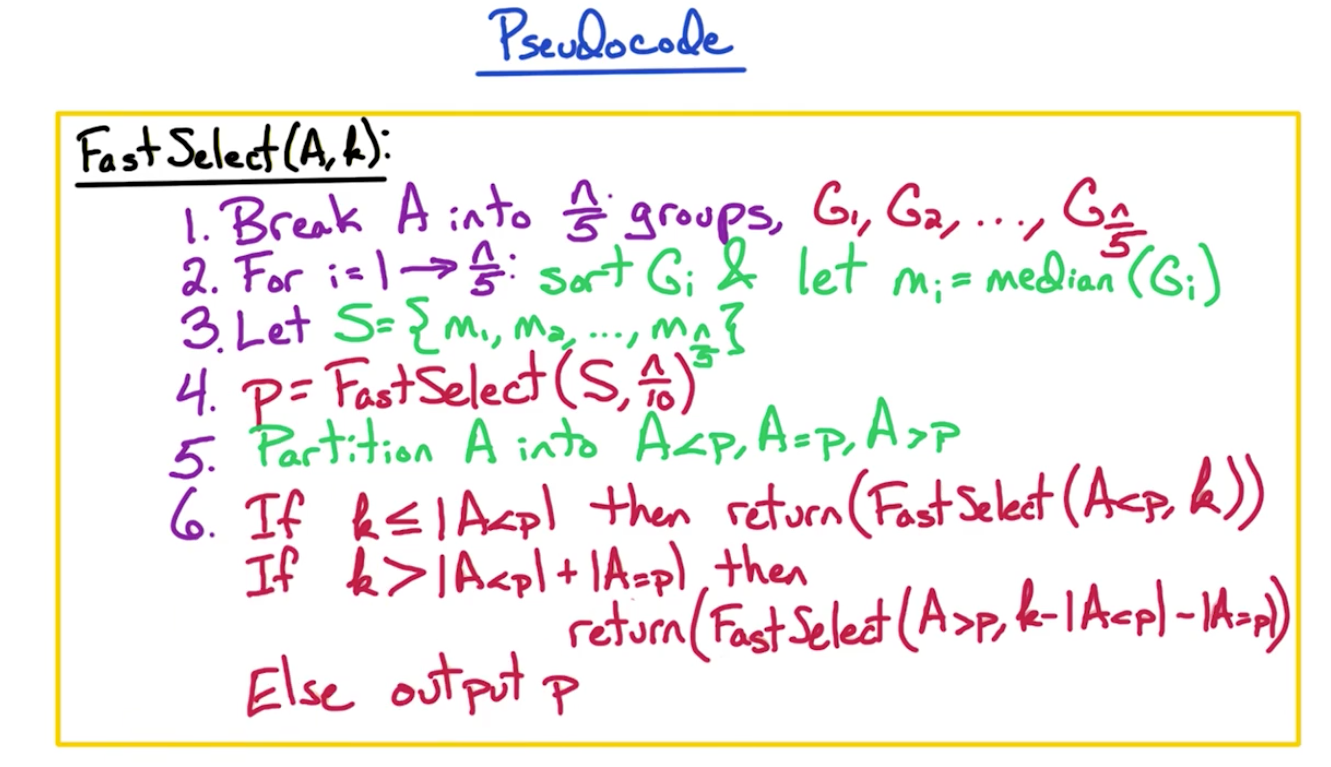 Pseudocode
FastSelect(A, k):
1. Break A into n/5 groups, G₁, G₂, ..., G_{n/5}
2. For i=1 → n/5: sort Gᵢ & let mᵢ = median(Gᵢ)
3. Let S = {m₁, m₂, ..., m_{n/5}}
4. p = FastSelect(S, n/10)
5. Partition A into A<p, A=p, A>p
6. If k ≤ |A<p| then return(FastSelect(A<p, k))
If k > |A<p| + |A=p| then
return(FastSelect(A>p, k-|A<p|-|A=p|))
Else output p